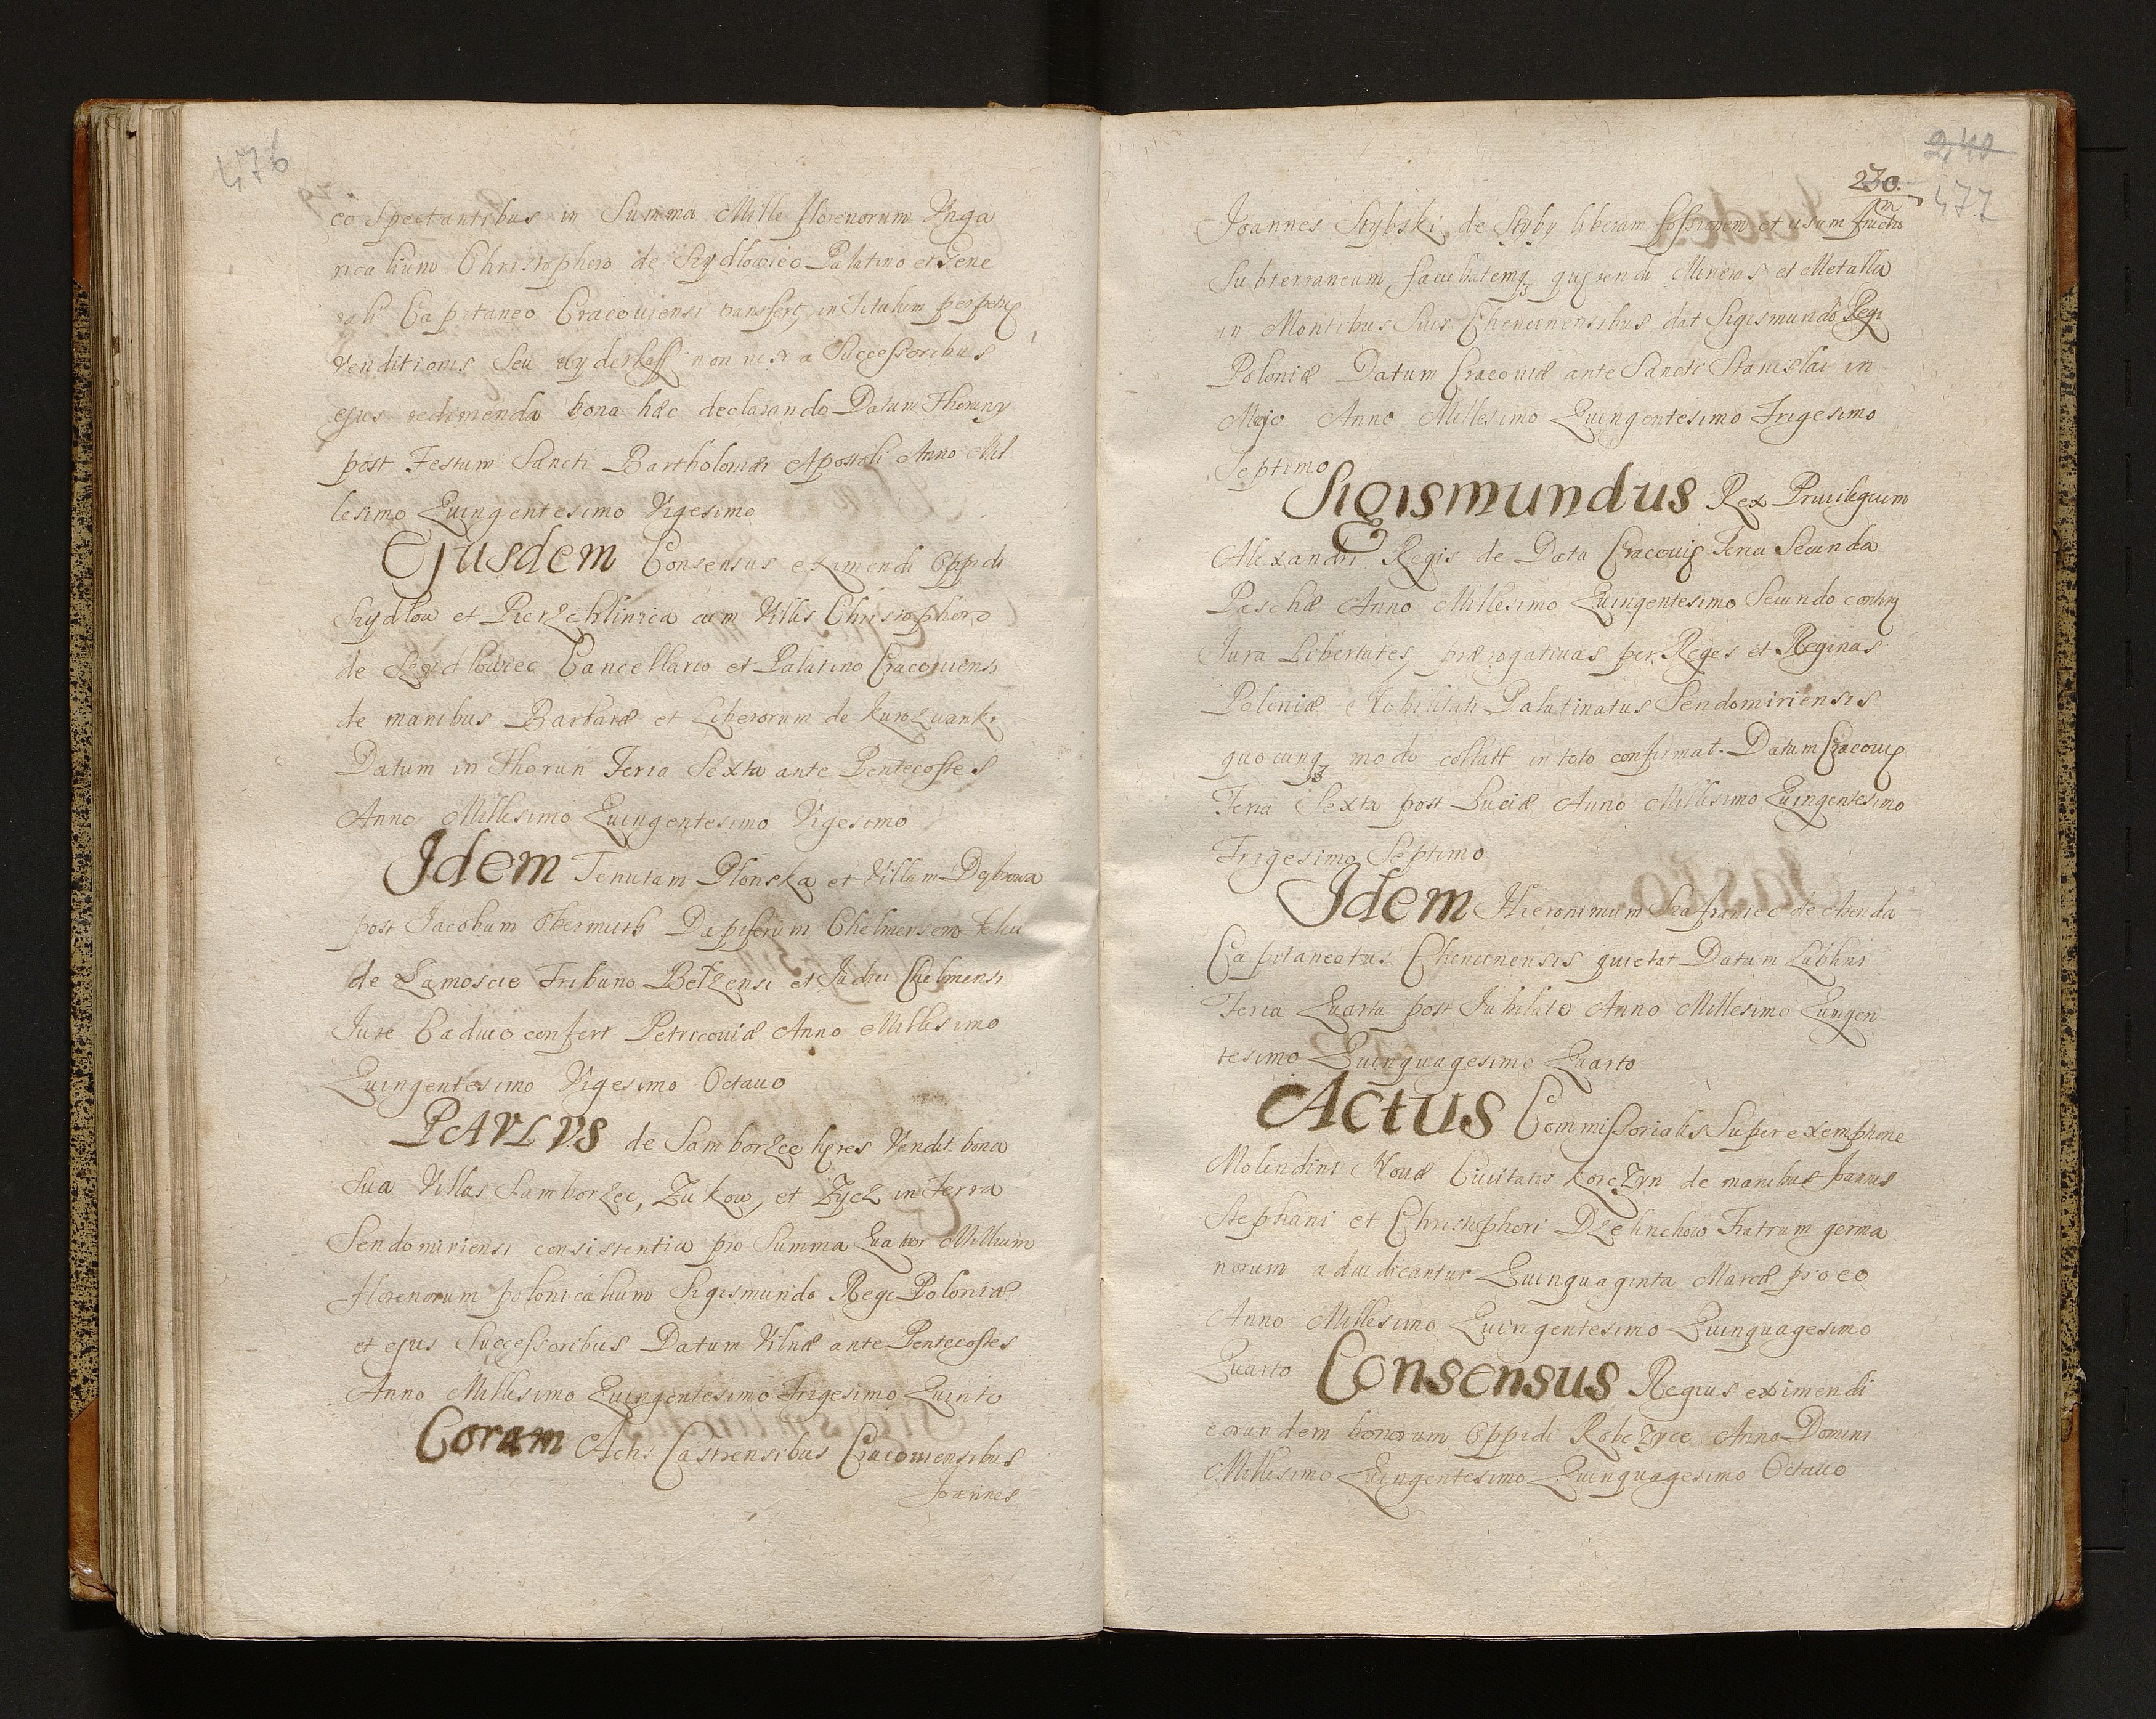 476
eo Spectantibus in Summa Mille florenorum Vnga
ricalium Christophoro de Szydlowiec Palatino et Gene
rali Capitaneo Cracouiensi transfert, in Titulum perpetuę
Venditionis Seu wyderkaff non nisi a Successoribus
ejus redimenda bona hæc declarando Datum Thoruny
post Festum Sancti Bartholomæi Apostoli Anno Mil
lesimo Quingentesimo Vigesimo
Ejusdem Consensus eximendi Oppidi
Szydlow et Pierzchlinica cum Villis Christophoro
de Szydlowiec Cancellario et Palatino Cracouiensi
de manibus Barbaræ et Liberorum de Kurozwanki
Datum in Thorun Feria Sexta ante Pentecostes
Anno Millesimo Quingentesimo Vigesimo
Idem Tenutam Plonska et Villam Dąbrowa
post Jacobum Dapiferum Chelmensem Felici
de Zamoscie Tribuno Belzensi et Judici Chelmensi
Jure Caduco confert Petricouiæ Anno Millesimo
Quingentesimo Vigesimo Octauo
PAVLVS de Samborzec hęres Vendit bona
Sua Villas Samborzec, Zukow, et Zycz in Terra
Sendomiriensi consistentia pro Summa Quatuor Millium
florenorum polonicalium Sigismundo Regi Poloniæ
et ejus Successoribus Datum Vilnæ ante Pentecostes
Anno Millesimo Quingentesimo Trigesimo Quinto
Coram Actis Castrensibus Cracouiensibus
Joannes
240
230.
477
Joannes Stybski de Styby liberam fossionem et usum fructum
Subterraneum, facultatemq; quęrendi Mineras et Metalla
in Montibus Suis Chencinensibus dat Sigismundo Regi
Poloniæ Datum Cracouiæ ante Sancti Stanislai in
Majo Anno Millesimo Quingentesimo Trigesimo
Septimo
Sigismundus Rex Priuilegium
Alexandri Regis de Data Cracouię Feria Secunda
Paschæ Anno Millesimo Quingentesimo Secundo contin
Jura Libertates, prærogatiuas per Reges et Reginas
Poloniæ Nobilitati Palatinatus Sendomiriensis
quocunq; modo collatt in toto confirmat. Datum Cracouię
Feria Sexta post Luciæ Anno Millesimo Quingentesimo
Trigesimo Septimo
Idem Hieronimum Szafraniec de
Capitaneatus Chencinensis quietat Datum Lublini
Feria Quarta post Jubilate Anno Millesimo Quingen
tesimo Quinquagesimo Quarto
Actus Commissorialis Super exemptione
Molendini Nouæ Ciuitatis Korczyn de manibus Joannis
Stephani et Christophori Fratrum germa
norum adiudicantur Quinquaginta Marcæ pro eo
Anno Millesimo Quingentesimo Quinquagesimo
Quarto Consensus Regius eximendi
eorundem bonorum Oppidi Robczyce Anno Domini
Millesimo Quingentesimo Quinquagesimo Octauo